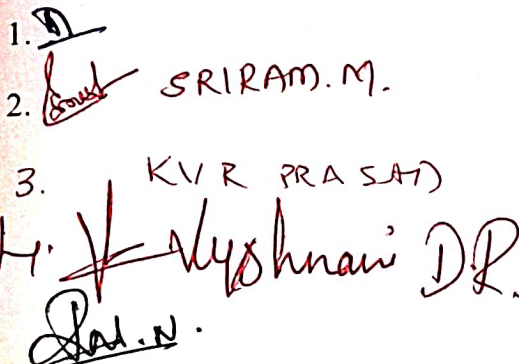 1.
2. SRIRAM. M.
3. KVR PRASAD
4. Vyshnavi D.R.